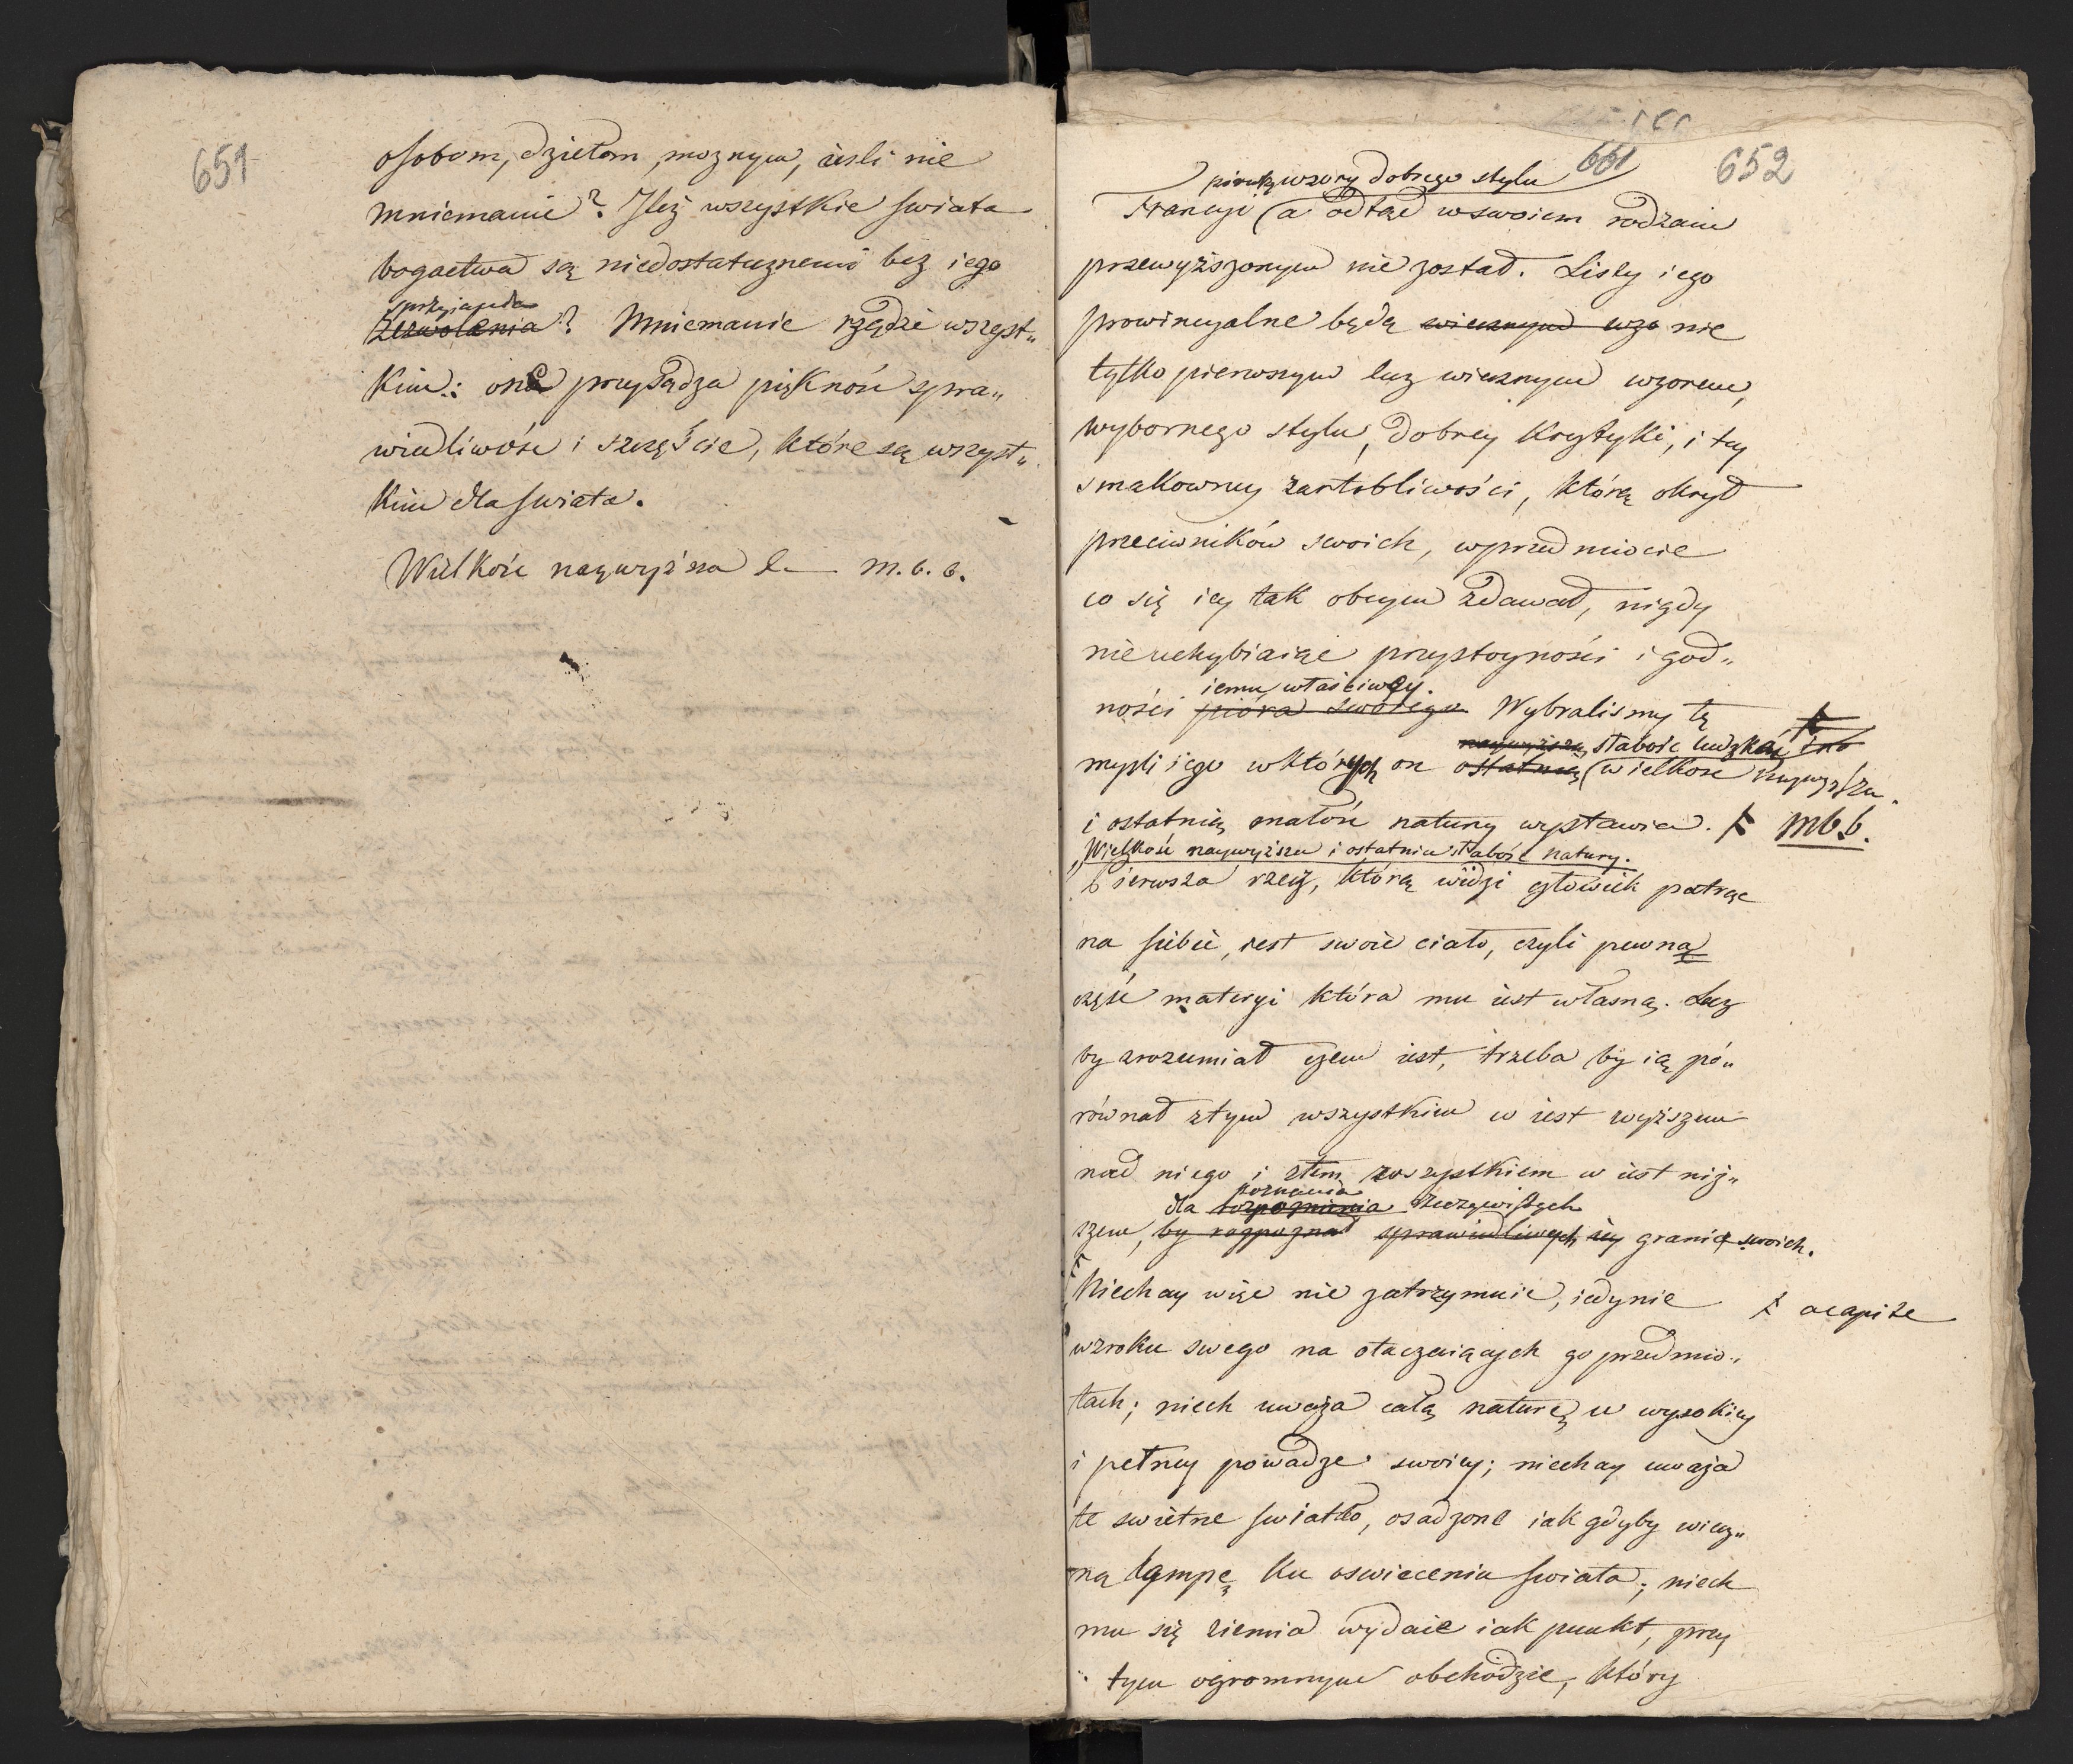 651
osobom, dziełom, możnym, ieśli nie
mniemanie? Ileż wszystkie swiata
bogactwa są niedostatecznemi bez iego
zezwolenia? Mniemanie rządzi wszyst„
kim: one przysądza piękność spra„
wiedliwość i szczęście, które są wszyst„
kim dla swiata.
Wielkość naywyższa &c m. b. b.
661 652
wzory dobrego stylu
Francyi (a odtąd w swoiem rodzaiu
przewyższonym nie został. Listy iego
prowincyalne będą wiecznym wzo nie
tylko pierwszym lecz wiecznym wzorem,
wybornego stylu, dobrey krytyki, i tey
smakowney żartobliwości, którą okrył
przeciwników swoich, w przedmiocie
co się iey tak obcym zdawał, nigdy
nieuchybiaiąc przystoyności i god„
iemu właściwey.
ności pióra swoiego Wybralismy tę
naywyższą słabość ludzką i na
mysli iego w których on ostatnią (wielkość naywyższą
i ostatnią małość natury wystawia. mbb.
Wielkość naywyższa i ostatnia słabość natury.
Pierwsza rzecz, którą widzi człowiek patrząc
na siebie, iest swoie ciało, czyli pewną
część materyi która mu iest własną. Lecz
by zrozumiał czem iest, trzeba by ią po„
równał z tym wszystkim co iest wyższem
nad niego i z tem wszystkiem co iest niż„
poznania
dla rozpoznania rzeczywistych
szem, by rozpoznał sprawiedliwych iey granic swoich.
Niechay więc nie zatrzymuie, iedynie acapite
wzroku swego na otaczaiących go przedmio„
tach; niech uważa całą naturę w wysokiey
i pełney powadze swoiey; niechay uważa
te swietne swiatło, osadzone iak gdyby wiecz„
ną lampę ku oswieceniu swiata; niech
mu się ziemia wydaie iak punkt, przy
tym ogromnym obchodzie, który